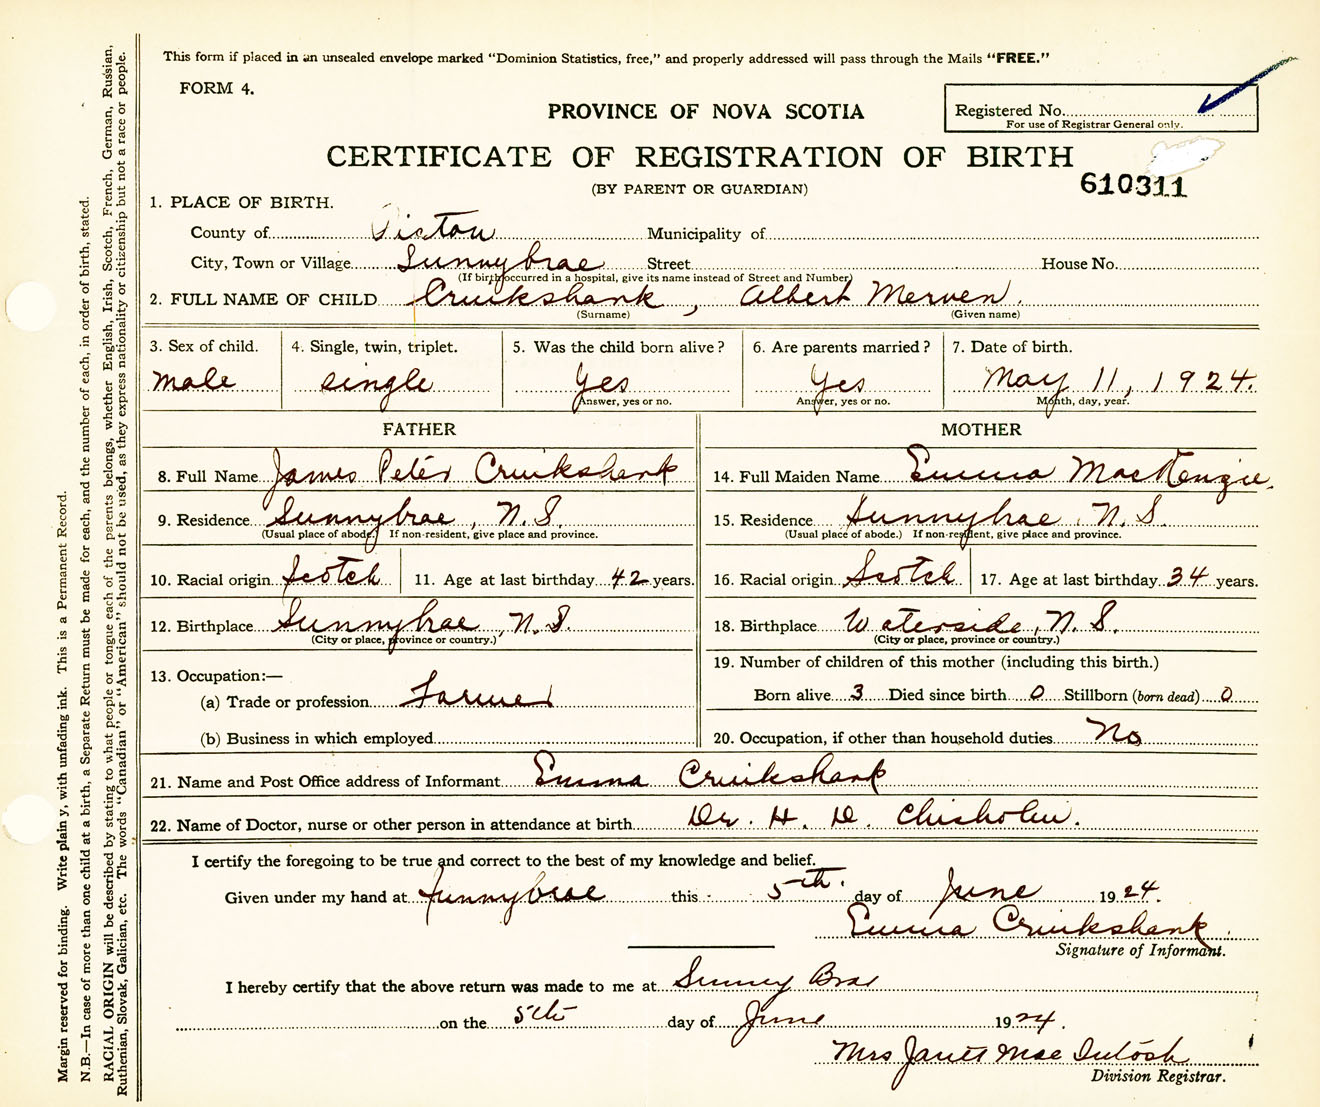 This form if placed in an unsealed envelope marked "Dominion Statistics, free," and properly addressed will pass through the Mails "FREE."
FORM 4.
Registered No.
For use of Registrar General only.
PROVINCE OF NOVA SCOTIA
CERTIFICATE OF REGISTRATION OF BIRTH
(BY PARENT OR GUARDIAN)
610311
1. PLACE OF BIRTH.
County of Pictou Municipality of
City, Town or Village Sunnybrae Street House No.
(If birth occurred in a hospital, give its name instead of Street and Number)
2. FULL NAME OF CHILD Cruikshank, Albert Merven.
(Surname) (Given name)
3. Sex of child. 4. Single, twin, triplet. 5. Was the child born alive? 6. Are parents married? 7. Date of birth.
male single Yes Yes May 11, 1924.
Answer, yes or no. Answer, yes or no. Month, day, year.
FATHER MOTHER
8. Full Name James Peter Cruikshank 14. Full Maiden Name Emma MacKenzie.
9. Residence Sunnybrae, N.S. 15. Residence Sunnybrae, N.S.
(Usual place of abode.) If non-resident, give place and province. (Usual place of abode.) If non-resident, give place and province.
10. Racial origin Scotch 11. Age at last birthday 42 years. 16. Racial origin Scotch 17. Age at last birthday 34 years.
12. Birthplace Sunnybrae, N.S. 18. Birthplace Waterside, N.S.
(City or place, province or country.) (City or place, province or country.)
13. Occupation:— 19. Number of children of this mother (including this birth.)
(a) Trade or profession Farmer Born alive 3 Died since birth 0 Stillborn (born dead) 0
(b) Business in which employed 20. Occupation, if other than household duties No
21. Name and Post Office address of Informant Emma Cruikshank
22. Name of Doctor, nurse or other person in attendance at birth Dr. H. D. Chisholm.
I certify the foregoing to be true and correct to the best of my knowledge and belief.
Given under my hand at Sunnybrae this 5th. day of June 1924.
Emma Cruikshank
Signature of Informant.
I hereby certify that the above return was made to me at Sunny Brae
on the 5th day of June 1924.
Mrs Janet MacIntosh
Division Registrar.
Margin reserved for binding. Write plainy, with unfading ink. This is a Permanent Record.
N.B.—In case of more than one child at a birth, a Separate Return must be made for each, and the number of each, in order of birth, stated.
RACIAL ORIGIN will be described by stating to what people or tongue each of the parents belongs, whether English, Irish, Scotch, French, German, Russian,
Ruthenian, Slovak, Galician, etc. The words "Canadian" or "American" should not be used, as they express nationality or citizenship but not a race or people.